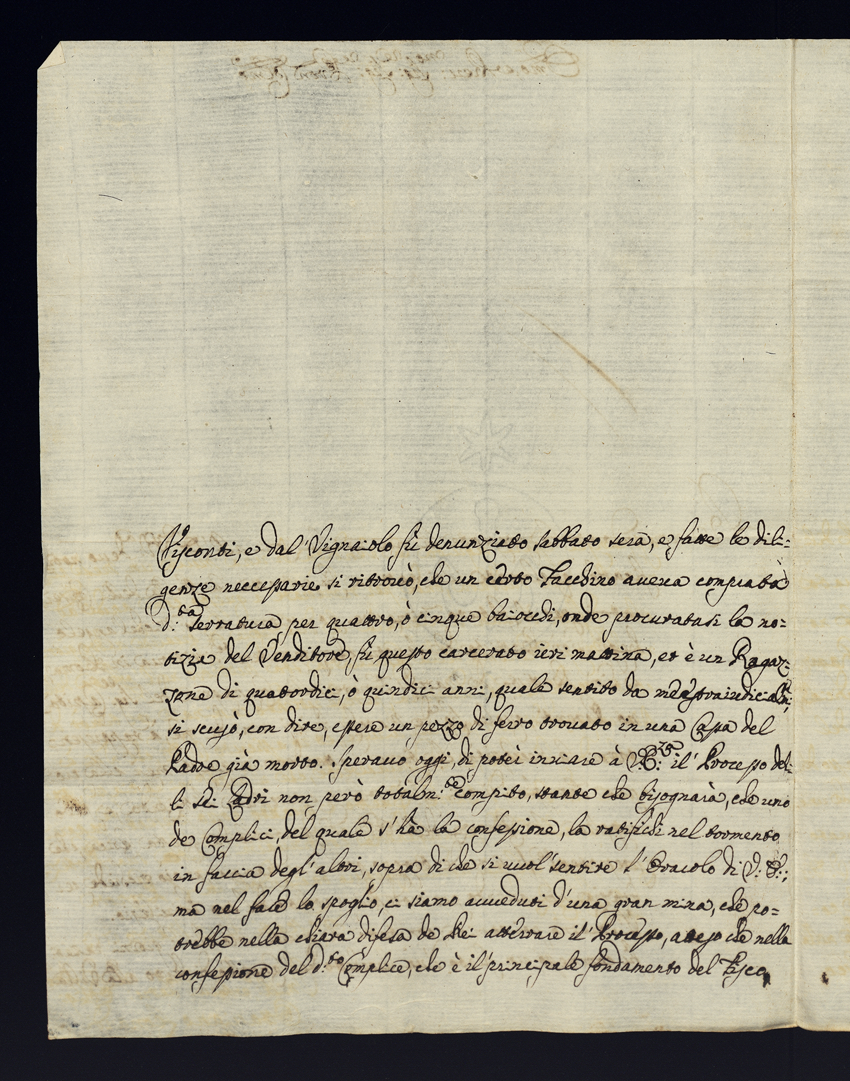 Visconti, e dal Vignaiolo fù denunziato sabbato sera, e fatte le dili=
genze neccessarie si ritrovò, che un certo Facchino aueua comprata
d.ta serratura per quattro, ò cinque baiocchi, onde procuratasi la no=
tizia del Venditore, fù questo carcerato ieri mattina, et è un Ragaz=
zone di quatordici, ò quindici anni, quale sentito da me estraiudicialm.te
si scusò, con dire, essere un pezzo di ferro trouato in una Cassa del
Padre già morto. Sperauo oggi, di poter inuiare à il Processo del=
li Ladri non però totalm.te compito, stante che bisognarà, che uno
de Complici, del quale s'hà la confessione, la ratifichi nel tormento
in faccia degl'altri, sopra di che si vuol sentire l'Oracolo di V: E:;
ma nel fare lo spoglio, ci siamo acceduti d'una gran mina, che po=
trebbe nella chiara difesa de Rei atterrare il Processo, atteso che nella
confessione del d.to Complice, che è il principale fondamento del Fisco,